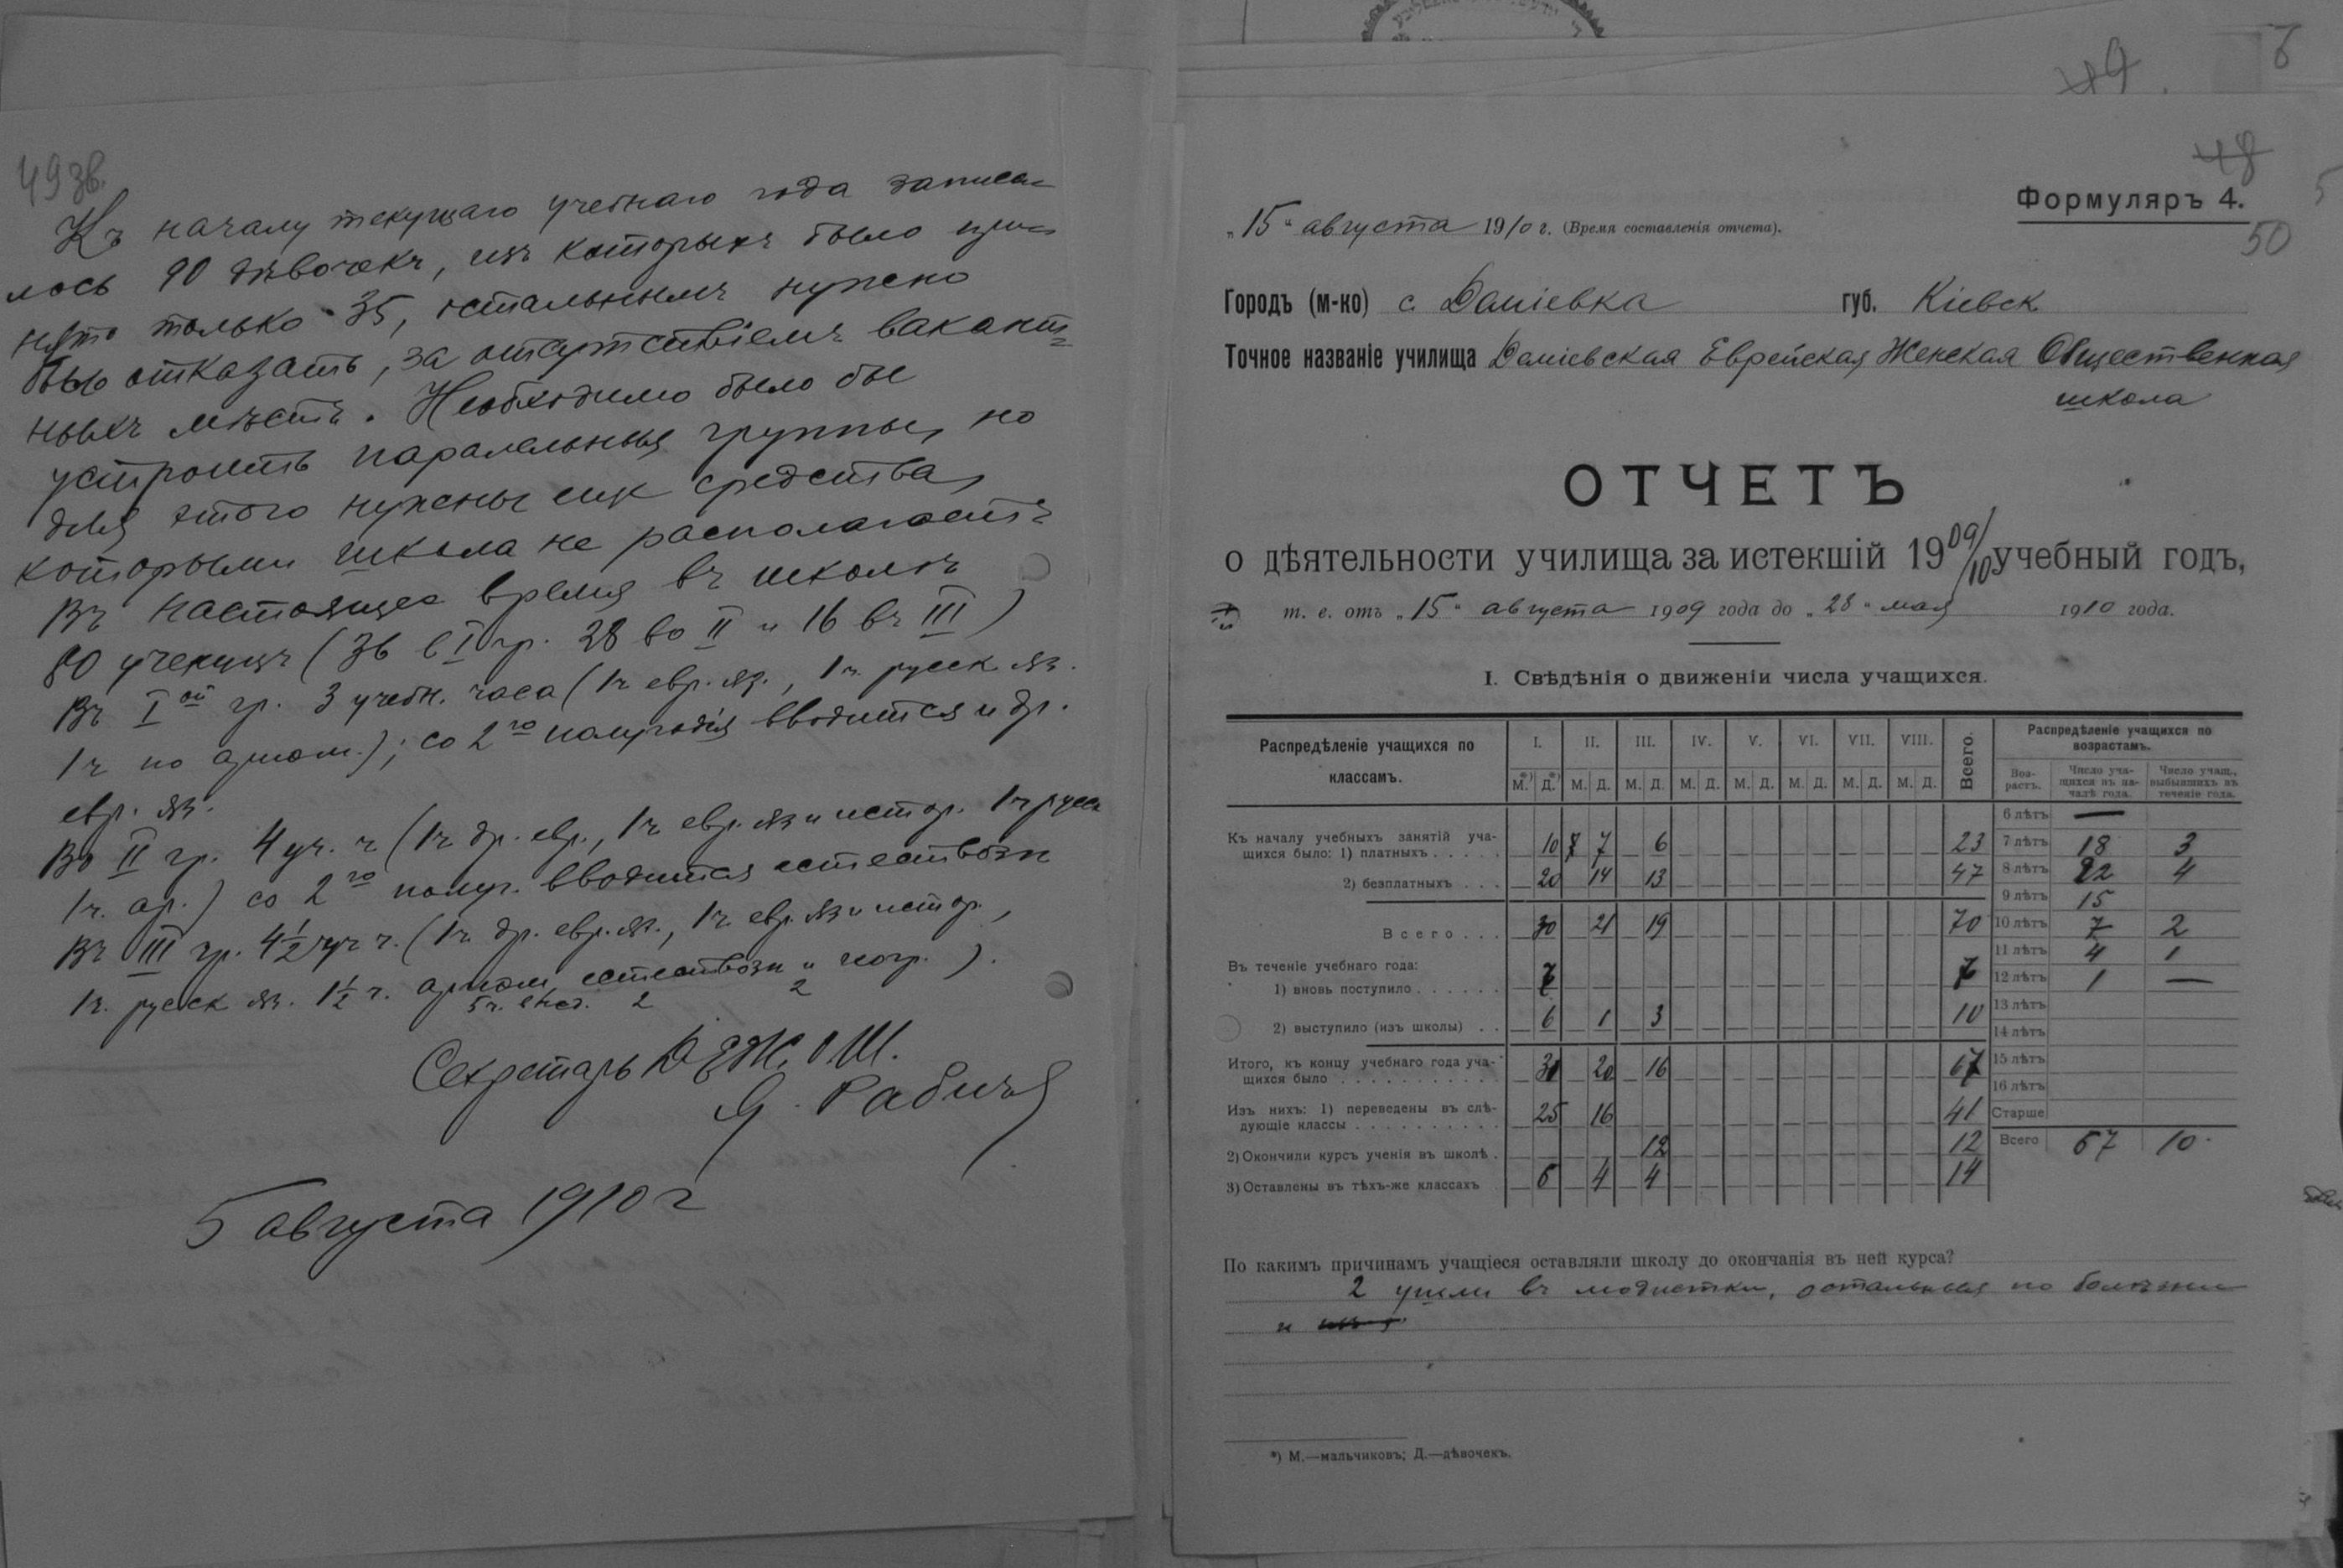 49 зв.
Къ началу текущаго учебнаго года записа-
лось 90 дѣвочекъ, изъ которыхъ было при-
нято только 35, остальнымъ нужно
было отказать, за отсутствіемъ вакант-
ныхъ мѣстъ. Необходимо было бы
устроить паралельныя группы, но
для этого нужны еще средства,
которыми школа не располагаетъ
Въ настоящее время въ школѣ
80 ученицъ (36 в I гр. 28 во II и 16 въ III)
Въ I ой гр. 3 учебн. часа (1ч евр. яз., 1ч. русск яз.
1ч по ариөм.); со 2го полугодія вводится и др.
евр. яз.
Во II гр. 4 уч. ч (1ч др. евр., 1ч евр. яз и истор. 1ч русск
1ч. ар.) со 2го полуг. вводится естествозн
Въ III гр. 4½ уч ч. (1ч. др. евр. яз., 1ч. евр. яз и истор.,
1ч. русск яз. 1½ ч. ариөм, естествозн и геогр.).
2 2
Секретарь Д.Е.Ж.О.Ш.
Я. Рабичъ
5 августа 1910 г
49.
48
Формуляръ 4.
50
„15“ августа 1910 г. (Время составленія отчета).
Городъ (м-ко) с. Дашевка губ. Кіевск
Точное названіе училища Дашевская Еврейская Женская Общественная
школа
ОТЧЕТЪ
о дѣятельности училища за истекшій 1909/10 учебный годъ,
т. е. отъ „15“ августа 1909 года до „28“ мая 1910 года.
I. Свѣдѣнія о движеніи числа учащихся.
Распредѣленіе учащихся по классамъ. I. II. III. IV. V. VI. VII. VIII. Всего.
М.*) Д.*) М. Д. М. Д. М. Д. М. Д. М. Д. М. Д. М. Д.
Къ началу учебныхъ занятій уча-
щихся было: 1) платныхъ . . . . . 10 7 6 23
2) безплатныхъ . . . 20 14 13 47
Всего . . . 30 21 19 70
Въ теченіе учебнаго года:
1) вновь поступило . . . . . . 7 7
2) выступило (изъ школы) . . 6 1 3 10
Итого, къ концу учебнаго года уча-
щихся было . . . . . . . . . . . 31 20 16 67
Изъ нихъ: 1) переведены въ слѣ-
дующіе классы . . . . . . . . . . 25 16 41
2) Окончили курсъ ученія въ школѣ . 12 12
3) Оставлены въ тѣхъ-же классахъ 6 4 4 14
Распредѣленіе учащихся по
возрастамъ.
Воз-растъ. Число уча-щихся въ на-чалѣ года. Число учащ., выбывшихъ въ теченіе года.
6 лѣтъ —
7 лѣтъ 18 3
8 лѣтъ 22 4
9 лѣтъ 15
10 лѣтъ 7 2
11 лѣтъ 4 1
12 лѣтъ 1 —
13 лѣтъ
14 лѣтъ
15 лѣтъ
16 лѣтъ
Старше
Всего 67 10
По какимъ причинамъ учащіеся оставляли школу до окончанія въ ней курса?
2 ушли въ модистки, остальныя по болѣзни
и
*) М.—мальчиковъ; Д.—дѣвочекъ.